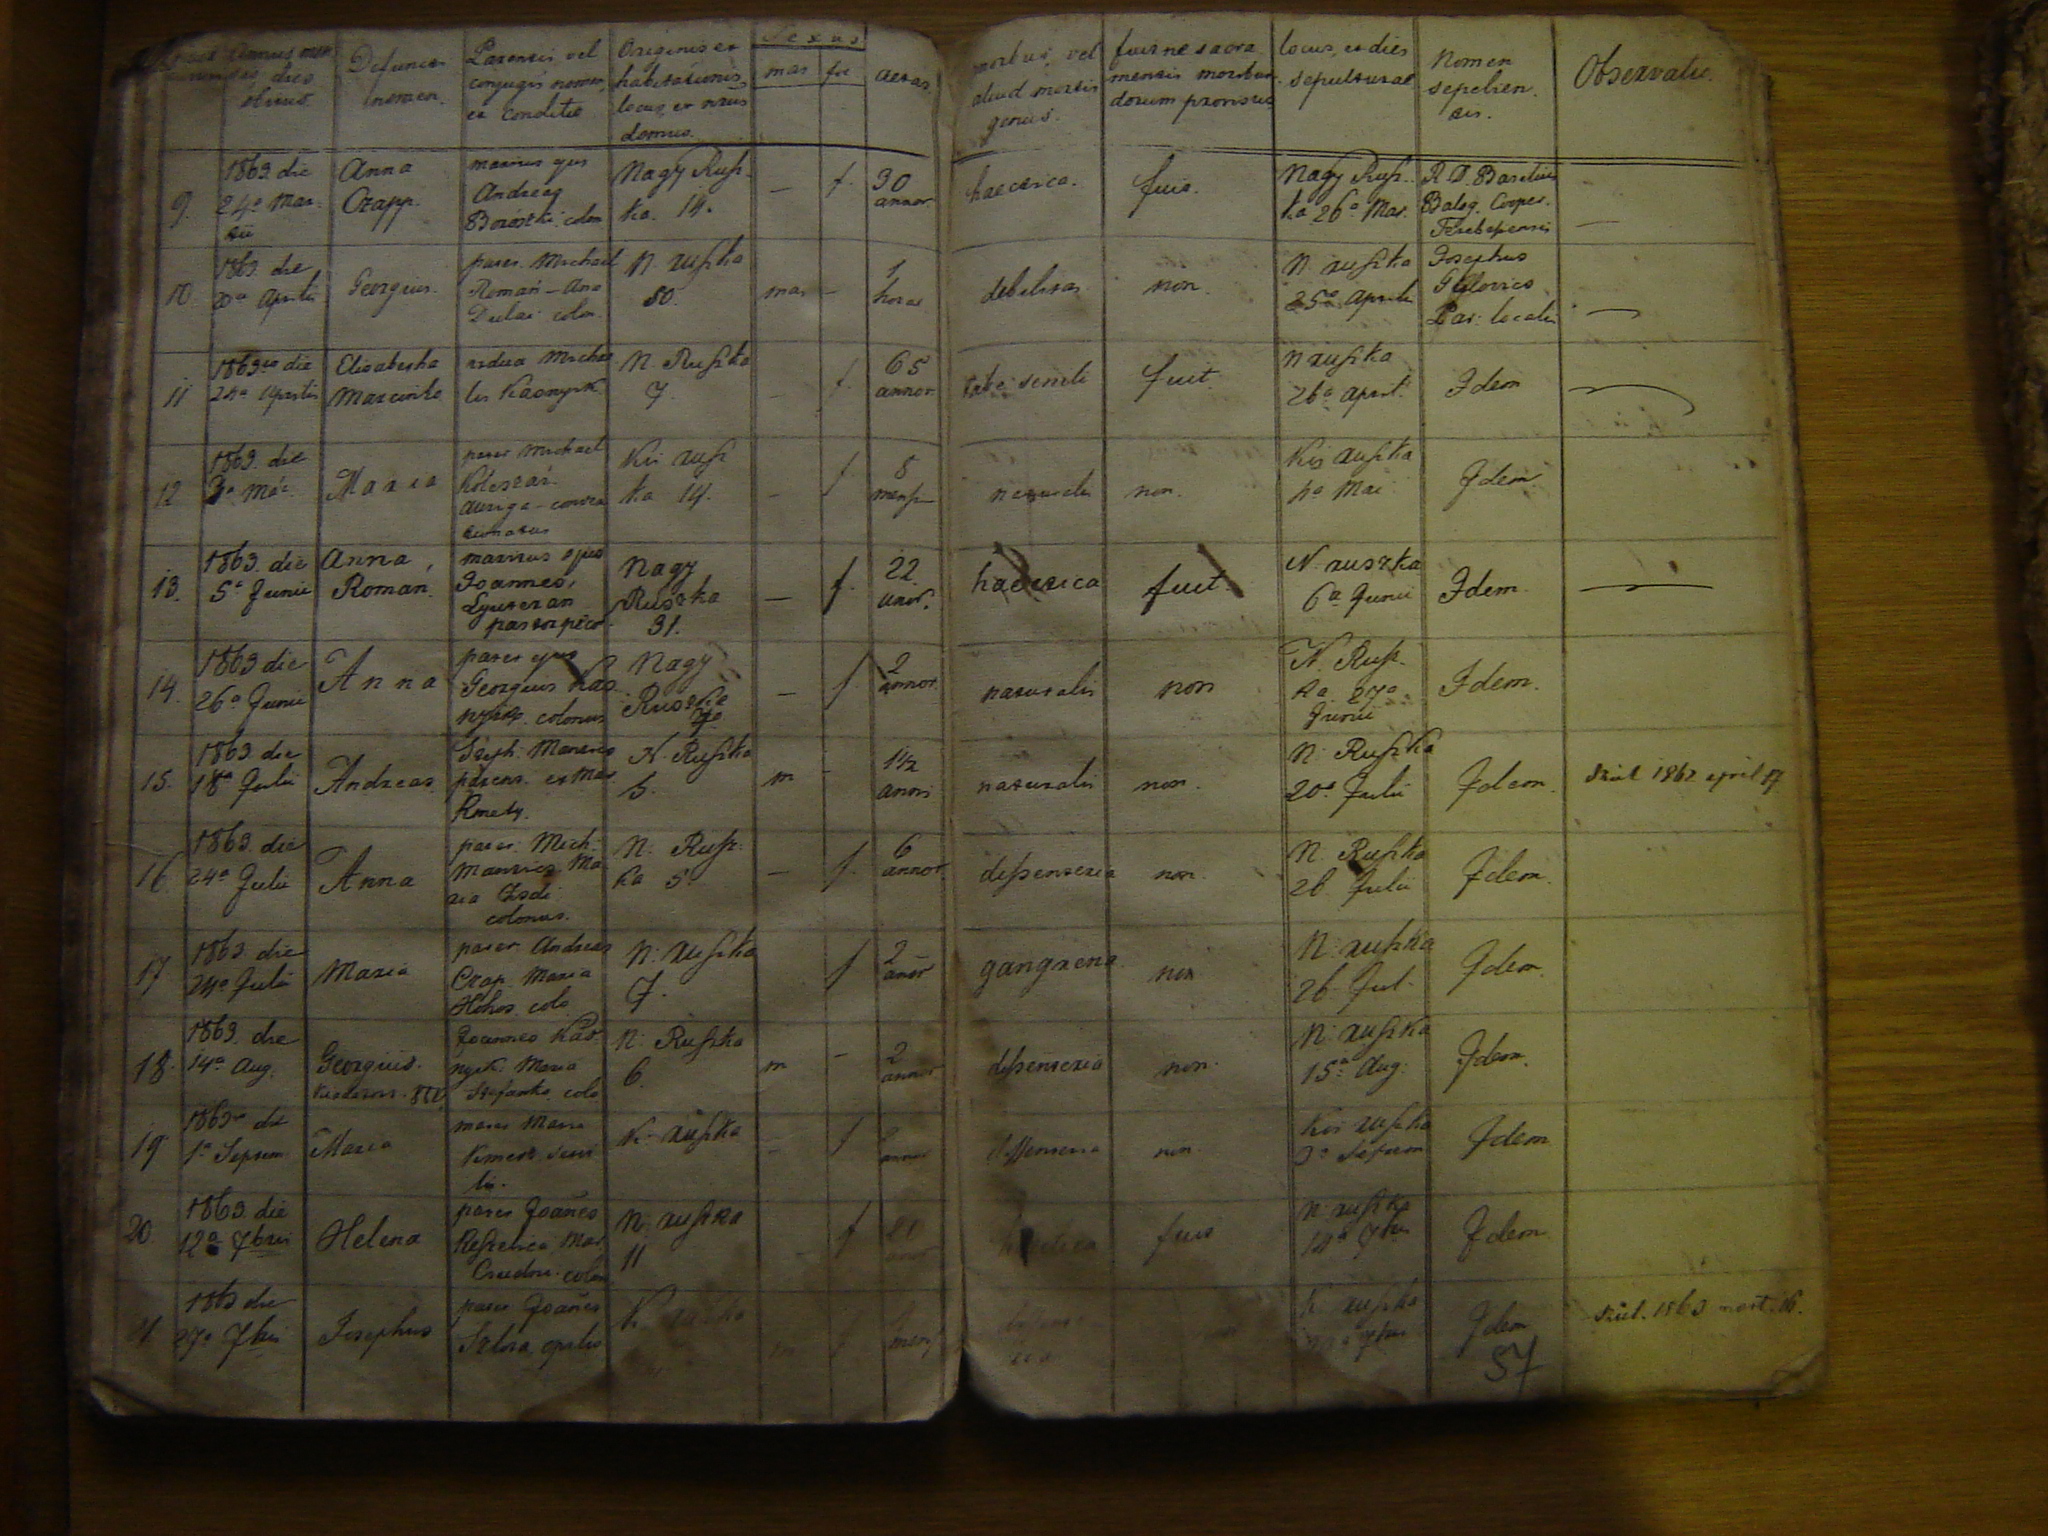 Annus men
sis dies
obitus
Defuncti
nomen.
Parentis vel
conjugis nomen
et conditio
Originis et
habitationis
locus et nrus
domus.
Sexus
mas
foe
aetas
morbus, vel
aliud mortis
genus.
fuitne sacra
mentis moribun
dorum provisus
locus, et dies
sepulturae
Nomen
sepelien
tis.
Observatio.
9.
1863 die
24a Mar
tii
Anna
Czapp.
maritus ejus
Andreas
colon
Nagy Rusz
ka 14.
–
f.
30
annor.
haectica.
fuit.
Nagy Rusz
ka 26a Mar.
R. D. Basilius
Balog. Cooper.
10.
1863. die
20a Aprilis
Georgius.
pater. Michael
Román – Ana
Dulai colon.
N. ruszka
50.
mas
–
1
hora
debilitas
non.
N. ruszka
25a Aprilis
Josephus
Par: localis
11
1863 die
24a Aprilis
Elisabetha
vidua Micha
lis Kasnyik
N Ruszka
7.
–
f.
65
annor
tabe senili
fuit.
N ruszka
26a April.
Idem
12
1863. die
3a Mai.
Maria
pater Michael
Koleszár
auriga – conven
tionatus
Kis rusz
ka 14.
–
f
8
mensu
naturalis
non.
Kis ruszka
4a Mai
Idem.
13.
1863. die
5a Junii
Anna,
Roman.
maritus ejus
Joannes,
pastor pecor.
Nagy
Ruszka
31.
–
f.
22.
anor.
haectica
fuit.
N. ruszka
6a Junii
Idem.
14.
1863 die
26a Junii
Anna
pater ejus
Georgius Kas
nyik. colonus
Nagy
Ruszka
–
f.
2
annor.
naturalis
non
N. Rusz.
ka 27a
Junii
Idem.
15.
1863. die
18a Julii
Andreas.
parens. et Mar.
Kmetz.
N. Ruszka
5.
m
-
1½
anni
naturalis
non.
N. Ruszka
20a Julii
Idem.
Szül. 1862 april 17
16
1863. die
24a Julii
Anna
pater. Mich.
Ma
ria
colonus.
N. Rusz.
ka 5.
–
f.
6
annor.
dissenteria
non.
N. Ruszka
26. Julii
Idem.
17.
1863. die
24a Julii
Maria
pater Andreas
Czap. Maria
Hohos. colo
N. ruszka
7.
f
2
anor
gangrena.
non
N. ruszka
26. Jul.
Idem.
18.
1863. die
14a Aug.
Georgius.
Joannes Kas
nyik. Maria
Stefanko. colo
N. Ruszka
6.
m
–
2
annor
dissenteria
non.
N. ruszka
15a Aug.
Idem.
19
1863 die
1a Septem
Maria
mater Maria
K. ruszka
f
dissenteria
non.
Kis ruszka
3a Septem
Idem
20.
1863. die
12a 7bris
Helena
pater Joanes
Mar.
colon
N. ruszka
11
f
haectica
fuit
N. ruszka
14a 7bris
Idem
1863 die
27a 7bris
Josephus
pater Joanes
opilio
K. ruszka
m
mens
K. ruszka
7bris
Idem
Szül. 1863
57